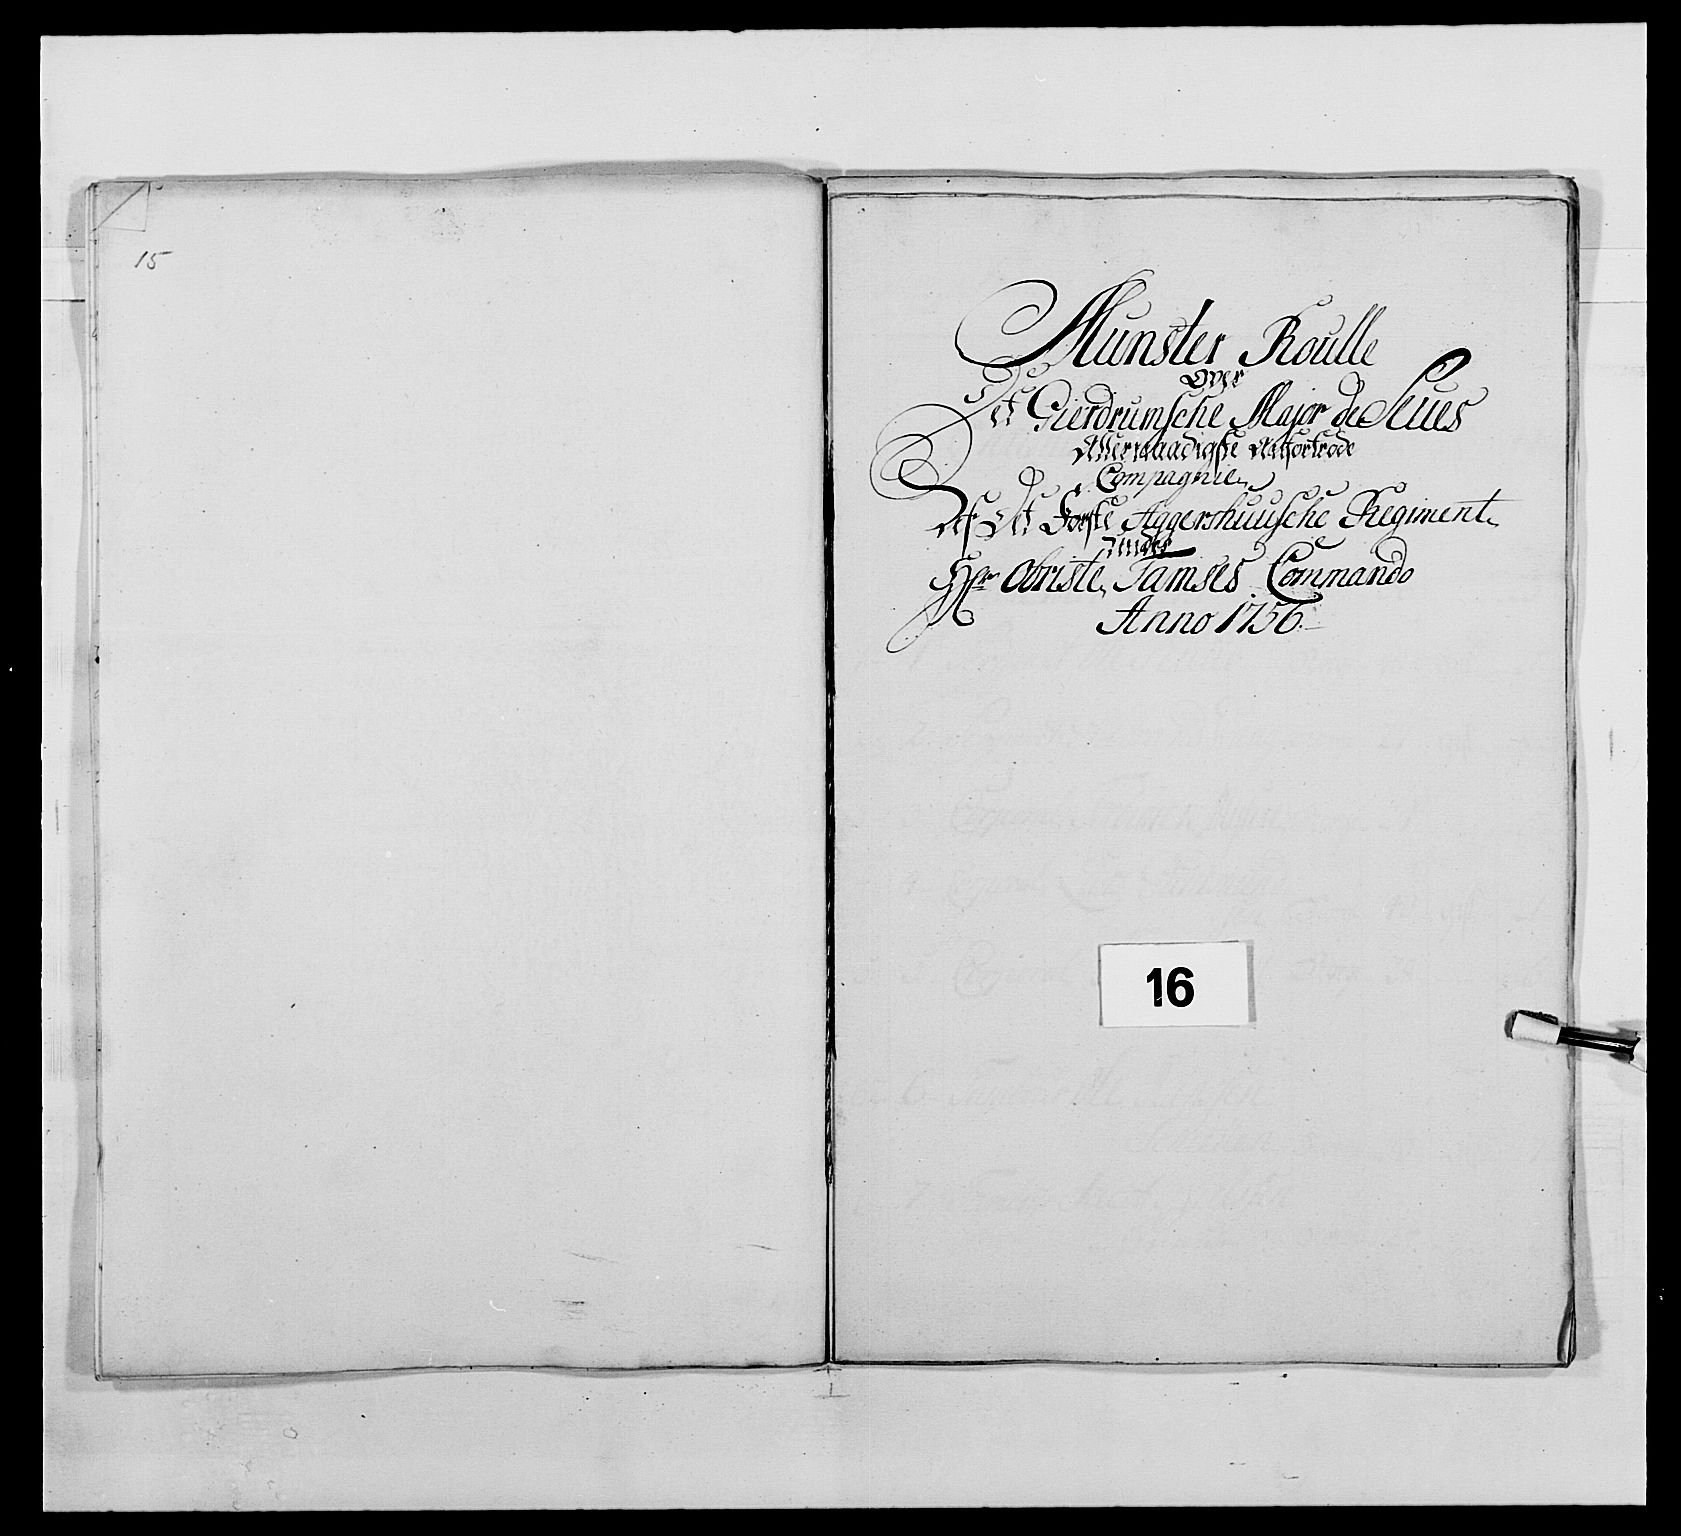 15
Munster Roulle
Over
Det Gierdrumsche Major de Seues
Allernaadigste Anfortrode
Compagnie
Af Det Første Aggershuusche Regiment
under
Hr Obriste Tamses Commando
Anno 1756.
16